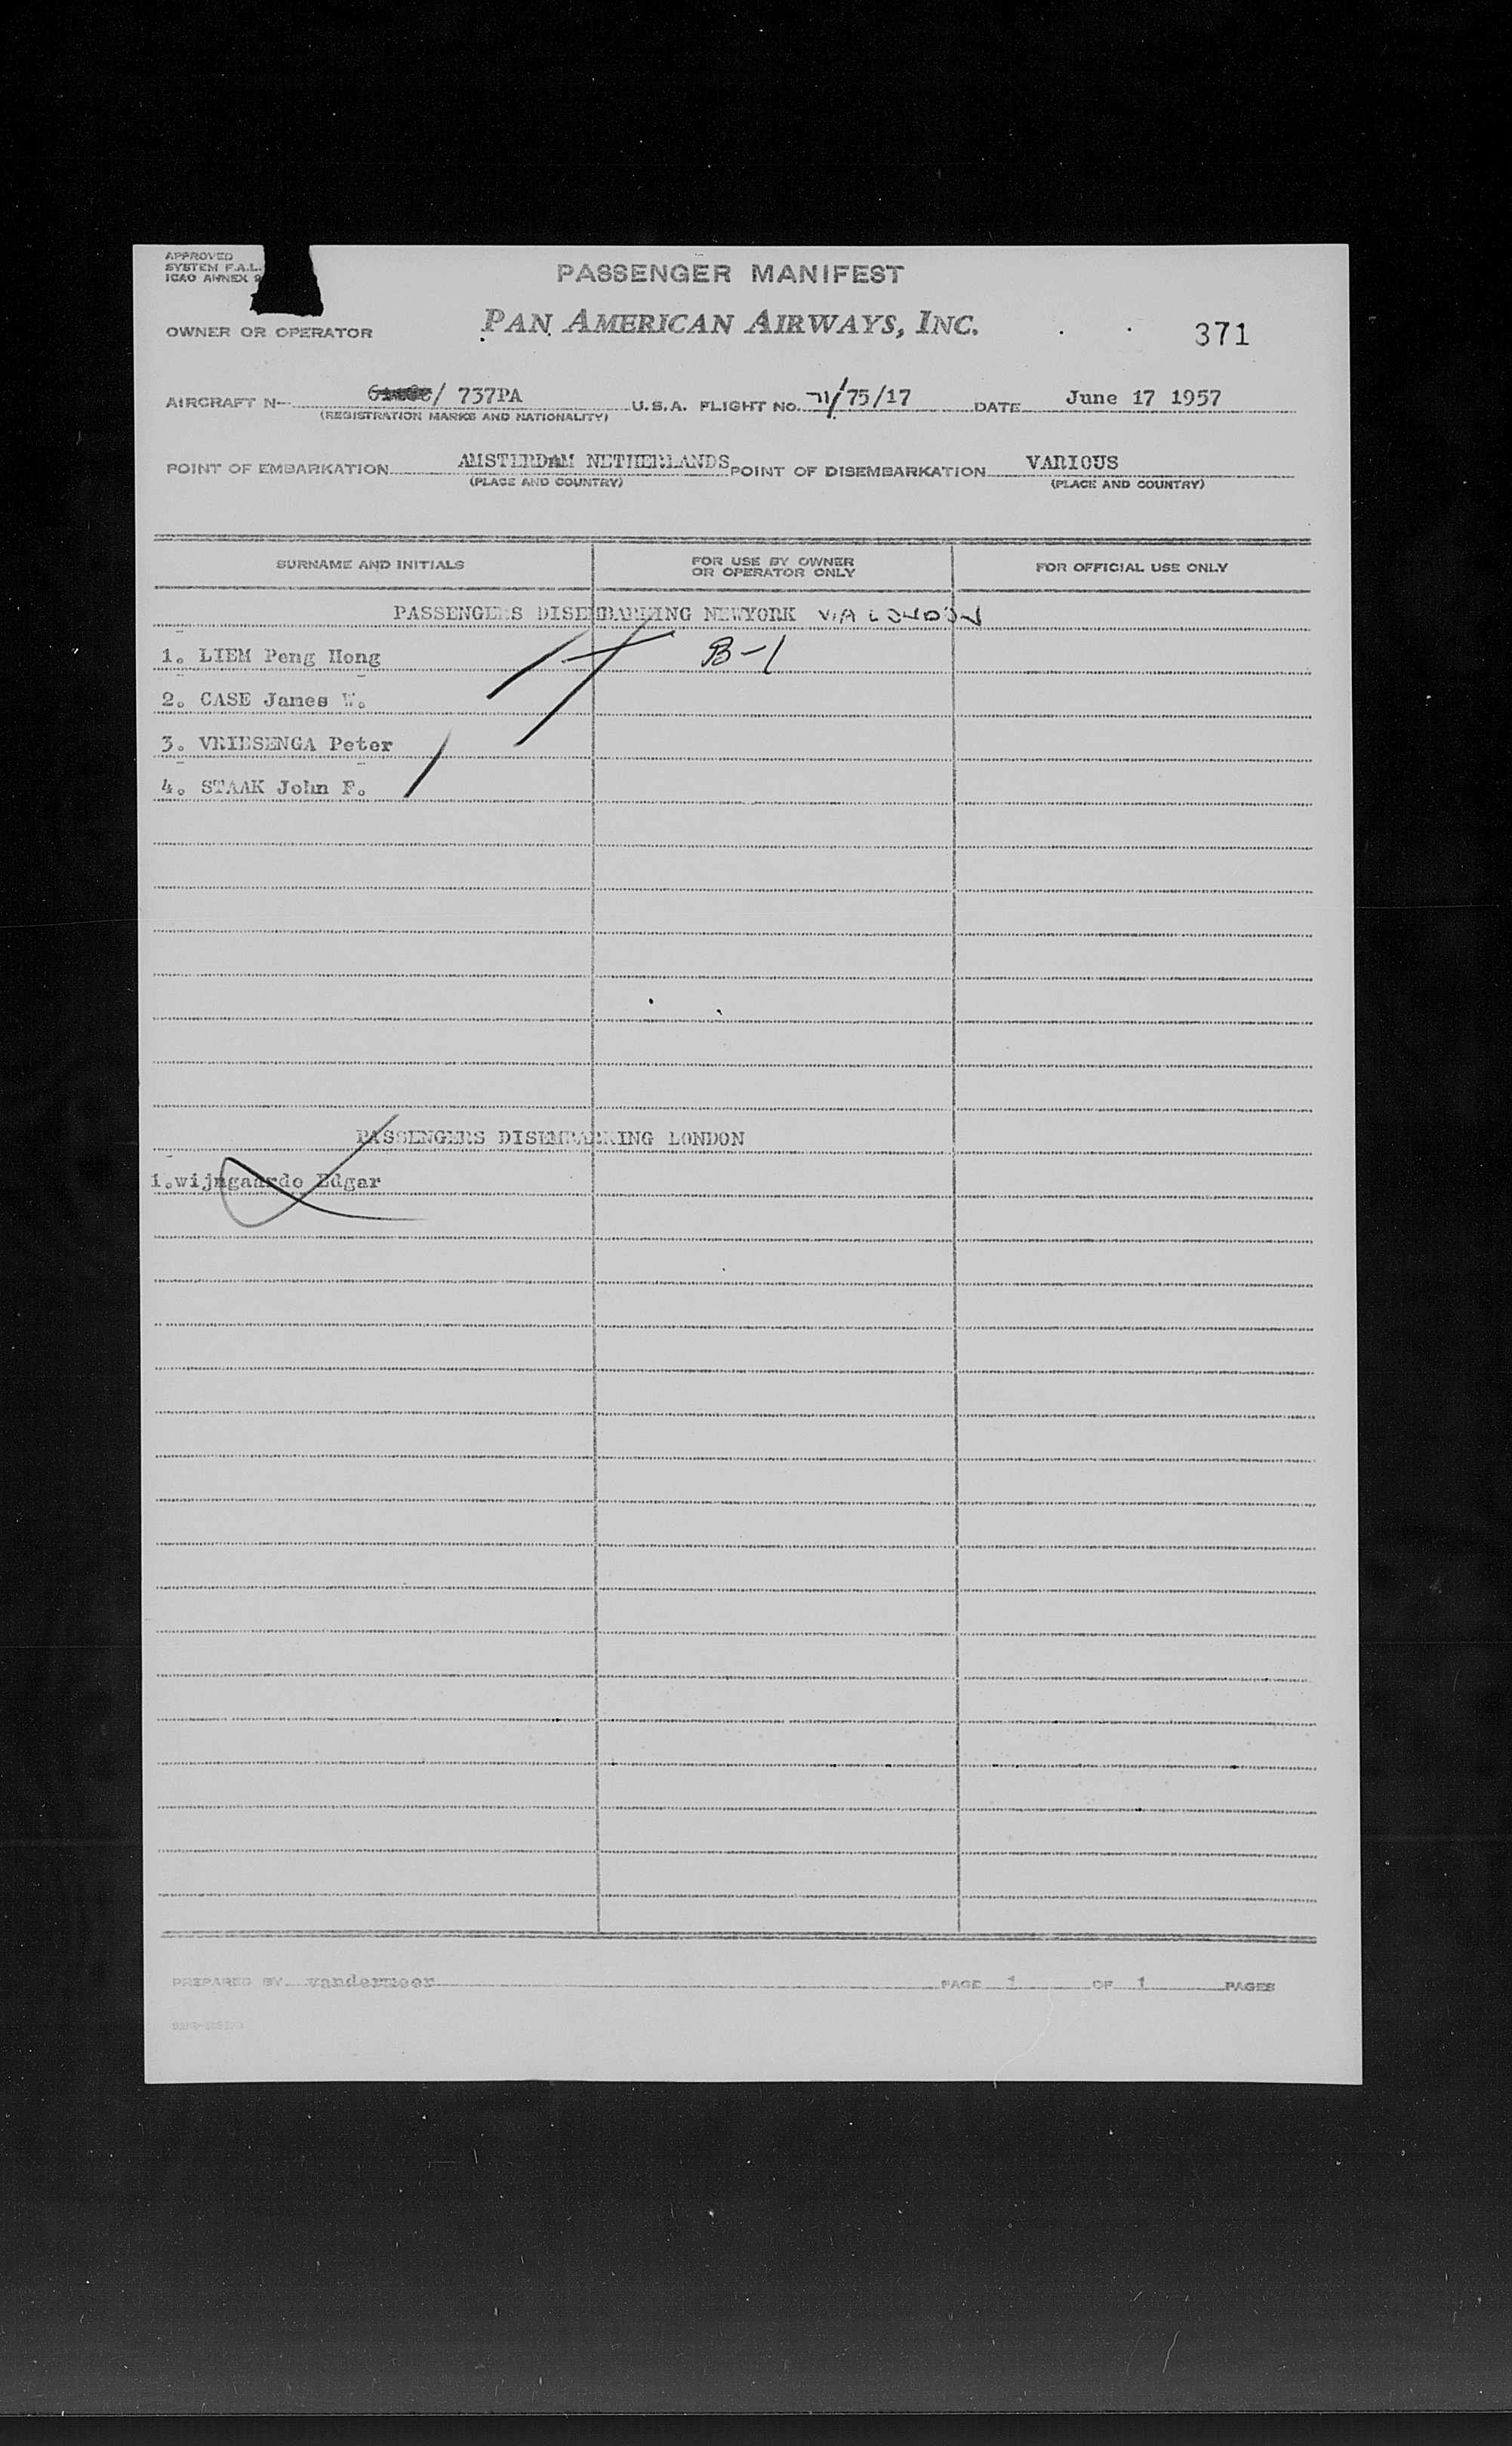 APPROVED
SYSTEM F.A.L.
ICAO ANNEX 9
PASSENGER MANIFEST
OWNER OR OPERATOR PAN AMERICAN AIRWAYS, INC. 371
AIRCRAFT N- / 737PA U.S.A. FLIGHT NO. 71/75/17 DATE June 17 1957
(REGISTRATION MARKS AND NATIONALITY)
POINT OF EMBARKATION AMSTERDAM NETHERLANDS POINT OF DISEMBARKATION VARIOUS
(PLACE AND COUNTRY) (PLACE AND COUNTRY)
SURNAME AND INITIALS FOR USE BY OWNER OR OPERATOR ONLY FOR OFFICIAL USE ONLY
PASSENGERS DISEMBARKING NEWYORK VIA LONDON
1. LIEM Peng Hong B-1
2. CASE James W.
3. VRIESENGA Peter
4. STAAK John F.
PASSENGERS DISEMBARKING LONDON
1.wijngaardo Edgar
PREPARED BY vandermeer PAGE 1 OF 1 PAGES